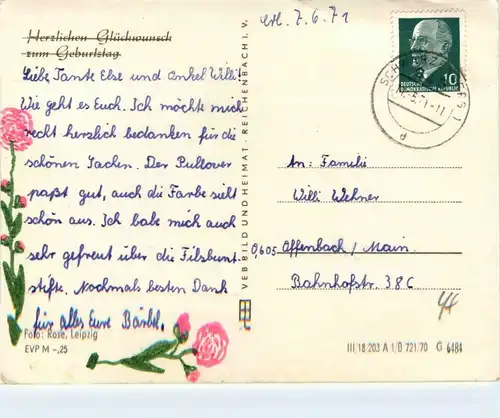 Herzlichen Glückwunsch
zum Geburtstag
erl. 7.6.71
Liebe Tante Else und Onkel Willi!
Wie geht es Euch. Ich möchte mich
recht herzlich bedanken für die
schönen Sachen. Der Pullover
paßt gut, auch die Farbe sieht
schön aus. Ich habe mich auch
sehr gefreut über die Filsbunt-
stifte. Nochmals besten Dank
für alles Eure Bärbel.
Foto: Rose, Leipzig
EVP M -,25
VEB BILD UND HEIMAT · REICHENBACH I. V.
10
DEUTSCHE
DEMOKRATISCHE REPUBLIK
An: Familie
Willi Wehner
0,605 Offenbach / Main
Bahnhofstr. 38C
III 18 203 A 1/B 721/70 G 6484